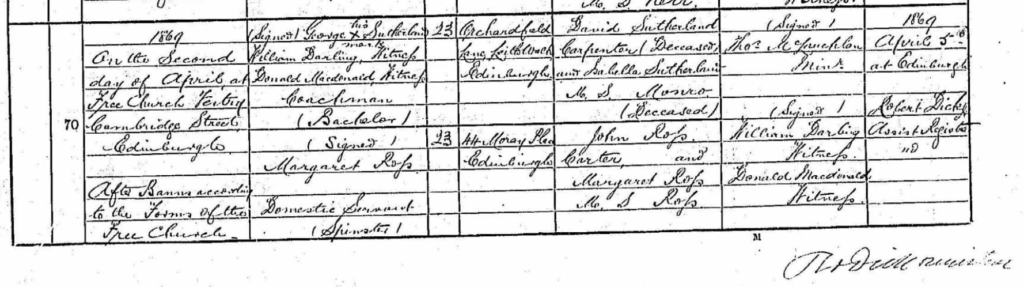 M. S. Kerr
Witness
70
1869
On the Second
day of April at
Free Church Vestry
Cambridge Street
Edinburgh
After Banns according
to the Forms of the
Free Church
(Signed) George X Sutherland
his
mark
William Darling, Witness
Donald Macdonald Witness
Coachman
(Bachelor)
(Signed)
Margaret Ross
Domestic Servant
(Spinster)
23
23
Orchardfield
Leith
Edinburgh
44 Moray Place
Edinburgh
David Sutherland
Carpenter (Deceased)
and Isabella Sutherland
M. S. Monro
(Deceased)
John Ross
Carter and
Margaret Ross
M. S. Ross
(Signed)
Thos
Minr
(Signed)
William Darling
Witness.
Donald Macdonald
Witness.
1869
April 5th
at Edinburgh
Robert Dick
Assist Registr
M